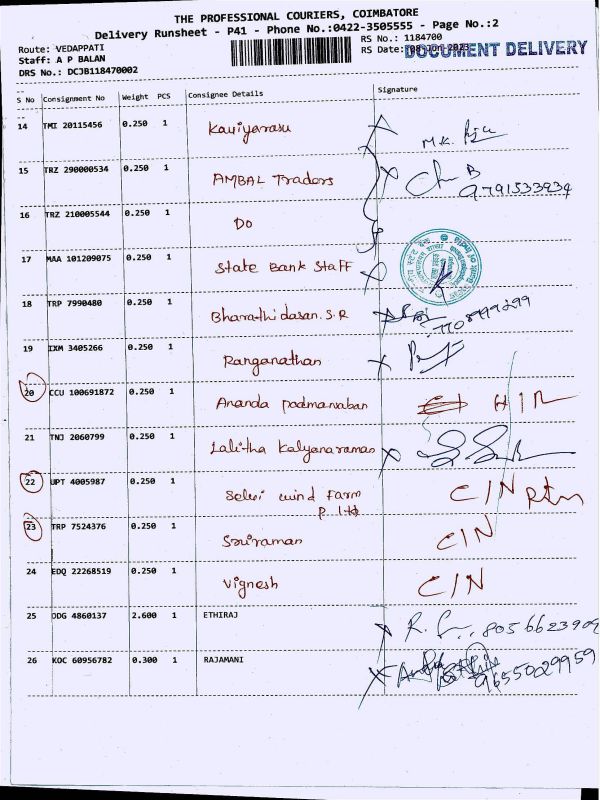 THE PROFESSIONAL COURIERS, COIMBATORE
Delivery Runsheet - P41 - Phone No.:0422-3505555 - Page No.:2
Route: VEDAPPATI
RS No.: 1184700
Staff: A P BALAN
RS Date: 08 Jun 2023
DOCUMENT DELIVERY
DRS No.: DCJB118470002
S No Consignment No Weight PCS Consignee Details Signature
14 TMI 20115456 0.250 1 Kaviyarasu M.K.
15 TRZ 290000534 0.250 1 AMBAL Traders
9791533934
16 TRZ 210005544 0.250 1 DO
17 MAA 101209075 0.250 1 State Bank Staff
18 TRP 7990480 0.250 1 Bharathidasan.S.R
19 IXM 3405266 0.250 1 Ranganathan
20 CCU 100691872 0.250 1 Ananda padmanaban
21 TNJ 2060799 0.250 1 Lalitha Kalyanaraman
22 UPT 4005987 0.250 1 Selvi wind Farm C/N Rtn
P Ltd
23 TRP 7524376 0.250 1 Sriraman C/N
24 EDQ 22268519 0.250 1 Vignesh C/N
25 ODG 4860137 2.600 1 ETHIRAJ R. 8056623909
26 KOC 60956782 0.300 1 RAJAMANI 9655029959